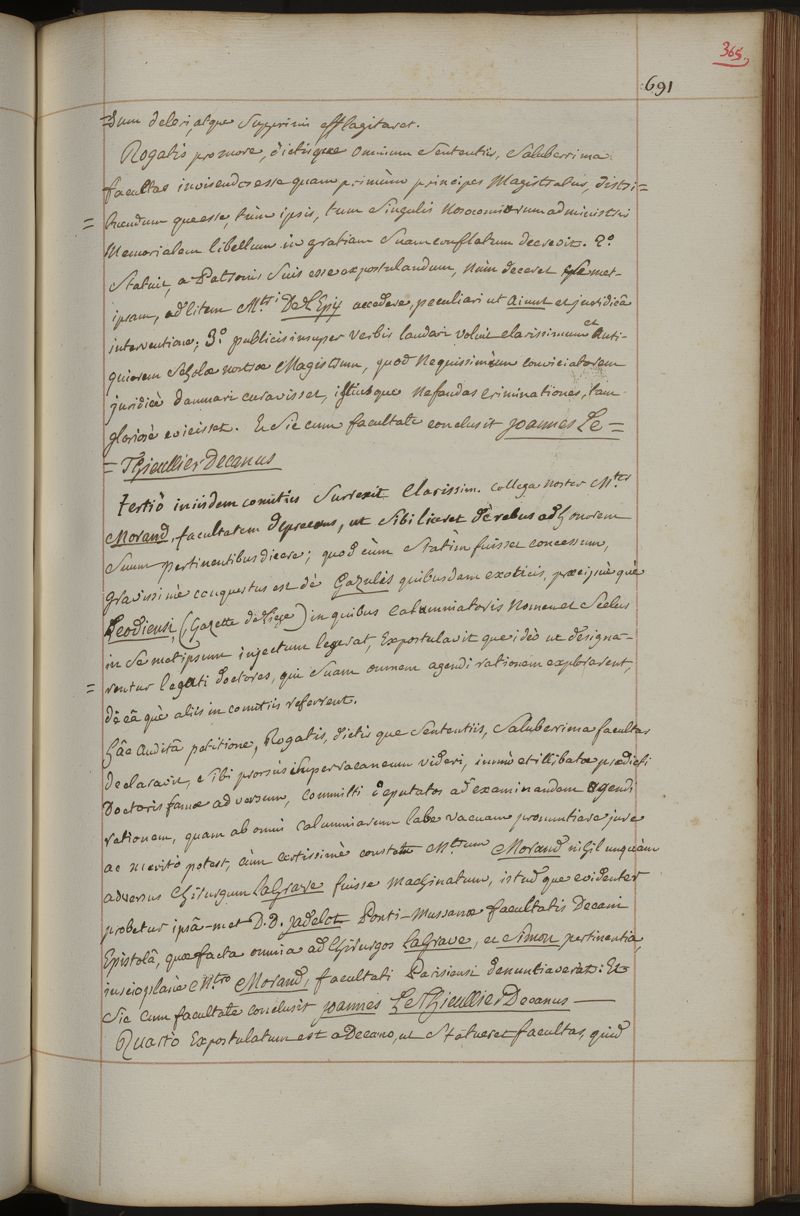 365
691
=dum deleri, atque supprimi efflagitaret.
Rogatis pro more, dictisque omnium sententiis, saluberrima
facultas invisendos esse quam primùm principes Magistratus, distri=
= buendum que esse, tùm ipsis, tum singulis nosocomiorum administris
Memorialem libellum in gratiam suam conflatum decrevit. 2.°
statuit, a Patronis suis esse expostulandum, nùm deceret semet-
ipsam, ad litem M.tri De L'Epy accedere peculiari ut aiunt et juridicâ
interventione; 3.° publicis insuper verbis laudari voluit clarissimum et Anti-
quiorem scholæ nostræ Magistrum, quod nequissimum conviciatorem
juridicè damnari curavisset, istiusque nefandas criminationes, tam
gloriosè evicisset. Et sic cum facultate conclusit joannes Le=
= Thieullier Decanus
tertiò in iisdem comitiis surrexit clarissim. collega noster M.ter
Morand, facultatem deprecans, ut sibi liceret dè rebus ad honorem
suum pertinentibus dicere; quod cùm statim fuisset concessum,
gravissimè conquestus est dè Gazulis quibusdam exoticis, præcipuè què
Leodiensi, (Gazette de Liege) in quibus calumniatoris nomen et scelus
in semetipsum injectum legerat, Expostulavit que ideò ut designa-
= rentur legati doctores, qui suam omnem agendi rationem explorarent,
dè eâ què aliis in comitiis referrent.
hâc auditâ petitione, Rogatis, dictis que sententiis, saluberrima facultas
declaravit, sibi prorsùs supervacaneum videri, immò et illibatæ prædicti
Doctoris famæ adversum, committi deputatos ad examinandam agendi
rationem, quam ab omni calumniarum labe vacuam pronuntiare jure
ac meritò potest, cùm certissimè constet M.trum Morand nihil unquàm
adversus chirurgum LaGrave fuisse machinatum, istudque evidenter
probetur ipsâ-met D.D. Jadelot Ponti-Mussanæ facultatis Decani
Epistolâ, quæ facta omnia ad chirurgos LaGrave, et Simon pertinentia,
inscio planè M.tro Morand, facultati Parisiensi denuntiaverat: Et
sic cum facultate conclusit joannes Le Thieullier Decanus —
Quartò Expostulatum est a Decano, ut statueret facultas, quid